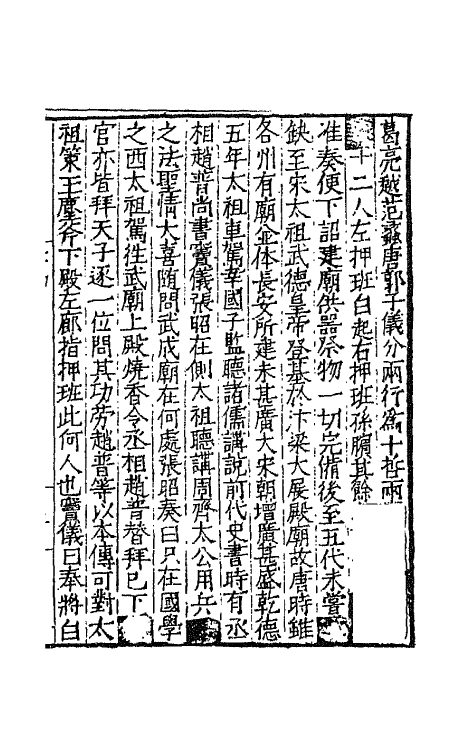 葛亮越范蠡唐郭子儀分兩行爲十哲兩
十二人左押班白起右押班孫臏其餘
准奏便下詔建廟供器祭物一切完備後至五代未嘗
缺至宋太祖武德皇帝登基於汴梁大展殿廟故唐時雖
各州有廟企体長安所建未甚廣大宋朝增廣甚盛乾德
五年太祖車駕幸國子監聽諸儒講說前代史書時有丞
相趙普尚書竇儀張昭在側太祖聽講周齊太公用兵
之法聖情大喜随問武成廟在何處張昭奏曰只在國學
之西太祖駕徃武廟上殿燒香令丞相趙普替拜已下
官亦皆拜天子逐一位問其功劳趙普等以本傳可對太
祖策玉麈斧下殿左廊指押班此何人也竇儀曰奉將白